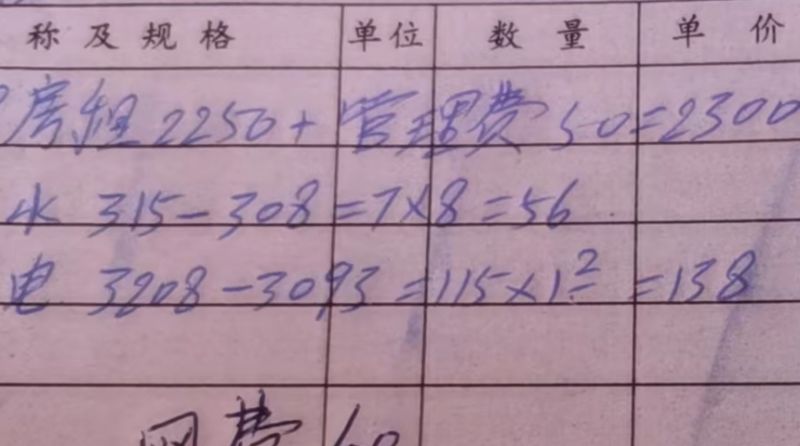 称及规格 单位 数量 单价
房租 2250+管理费 50=2300
水 315-308=7×8=56
电 3208-3093=115×1²=138
网费 60